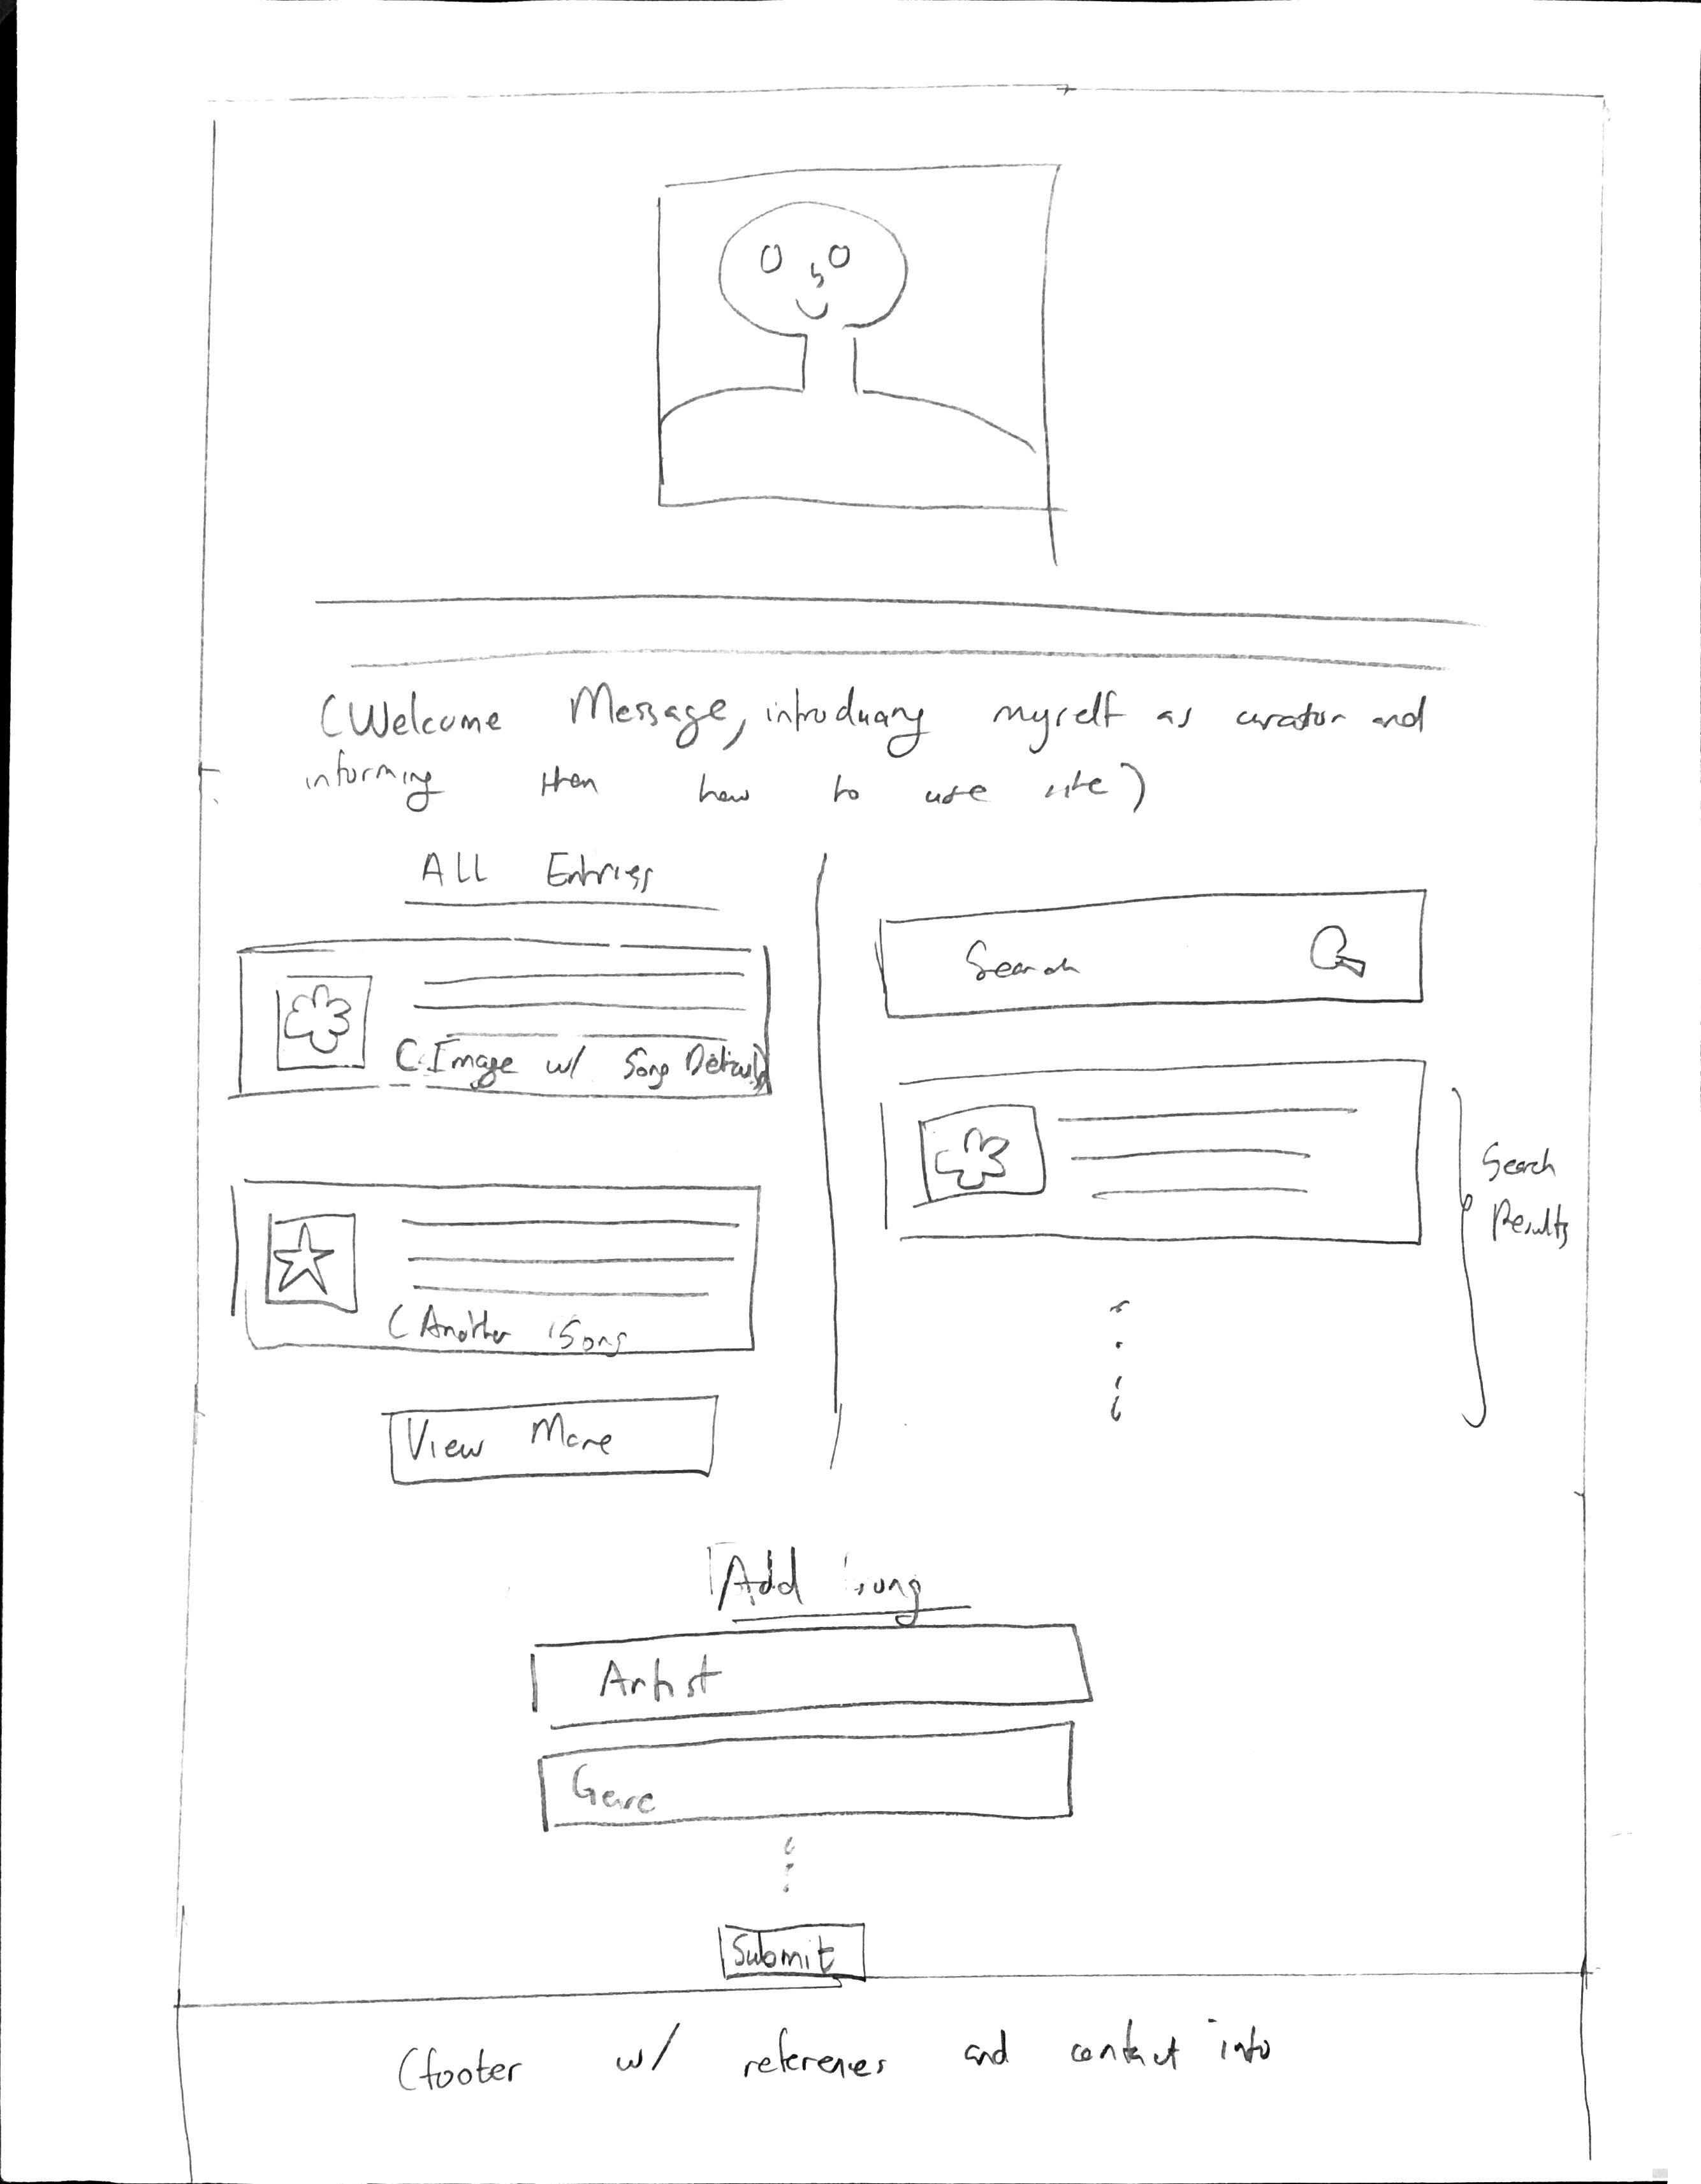 (Welcome Message, introducing myself as curator and
informing them how to use site)
All Entries
(Image w/ Song Details)
(Another Song
View More
Search
Search
Results
Add Song
Artist
Genre
Submit
(footer w/ references and contact info